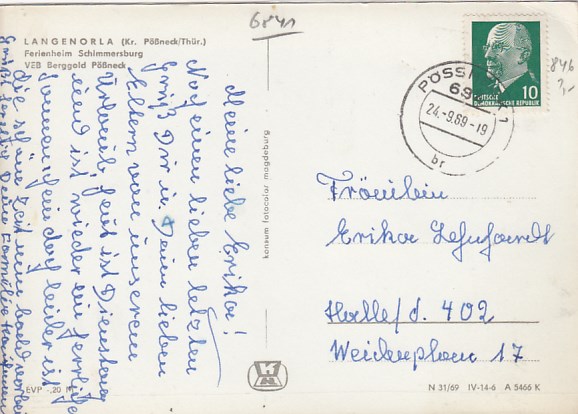 6841
LANGENORLA (Kr. Pößneck/Thür.)
Ferienheim Schimmersburg
VEB Berggold Pößneck
Meine liebe Erika!
Noch einen lieben letzten
Gruß Dir u. Deinen lieben
Eltern von unserem
Urlaub. Heut ist Dienstag
und ist wieder ein herrlicher
Sonnenschein doch leider ist
die schöne Zeit nun bald vorbei
Grüßt Deine Familie
konsum fotocolor magdeburg
PÖSSNECK 1
69
24.-9.69-19
br
DEUTSCHE
DEMOKRATISCHE REPUBLIK
10
846
2,-
Fräulein
Erika Lehnhardt
Halle/S. 402
Weidenplan 17
EVP -,20 M
N 31/69 IV-14-6 A 5466 K